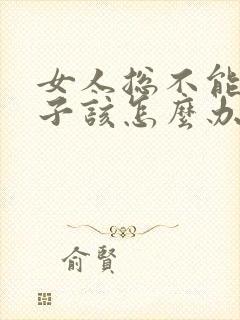 女人总不能
子该怎麼办
俞賢